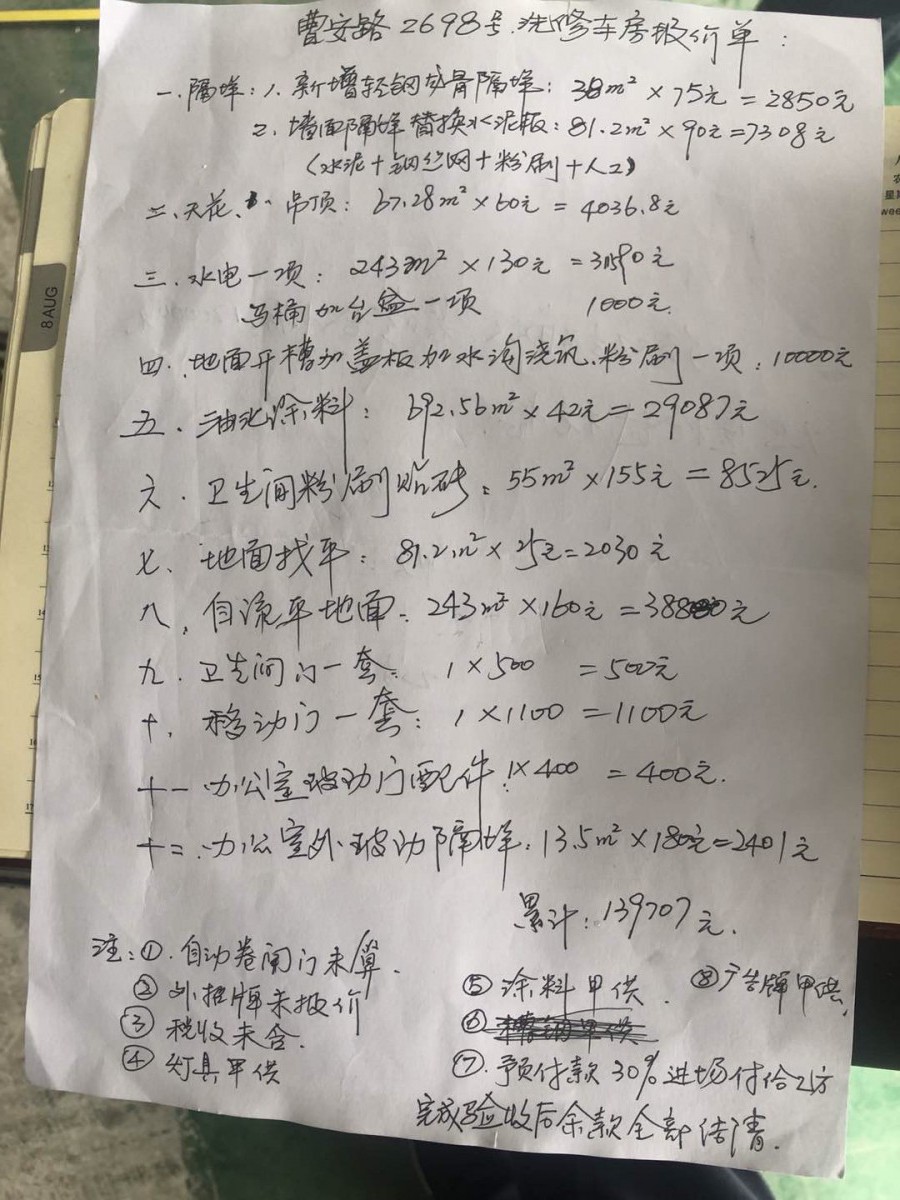 曹安路2698号.洗修车房报价单:
一.隔墙:1.新增轻钢龙骨隔墙:38m²×75元=2850元
2.墙面隔墙替换水泥板:81.2m²×90元=7308元
(水泥+钢丝网+粉刷+人工)
二.天花、吊顶:67.28m²×60元=4036.8元
三.水电一项:243m²×130元=31590元
马桶加台盆一项 1000元.
四.地面开槽加盖板加水沟浇筑.粉刷一项:10000元
五.油化涂料:692.56m²×42元=29087元
六.卫生间粉刷贴砖:55m²×155元=8525元.
七、地面找平:81.2m²×25元=2030元
八,自流平地面.243m²×160元=38880元
九.卫生间门一套:1×500=500元
十.移动门一套:1×1100=1100元
十一办公室玻动门配件:1×400=400元.
十二.办公室外玻动隔墙:13.5m²×180元=2401元
累计:139707元.
注:①.自动卷闸门未算.
②外招牌未报价
③税收未含.
④灯具甲供
⑤涂料甲供.
⑧广告牌甲供,
⑥槽钢甲供
⑦.预付款30%进场付给乙方
完成验收后余款全部结清.
8AUG